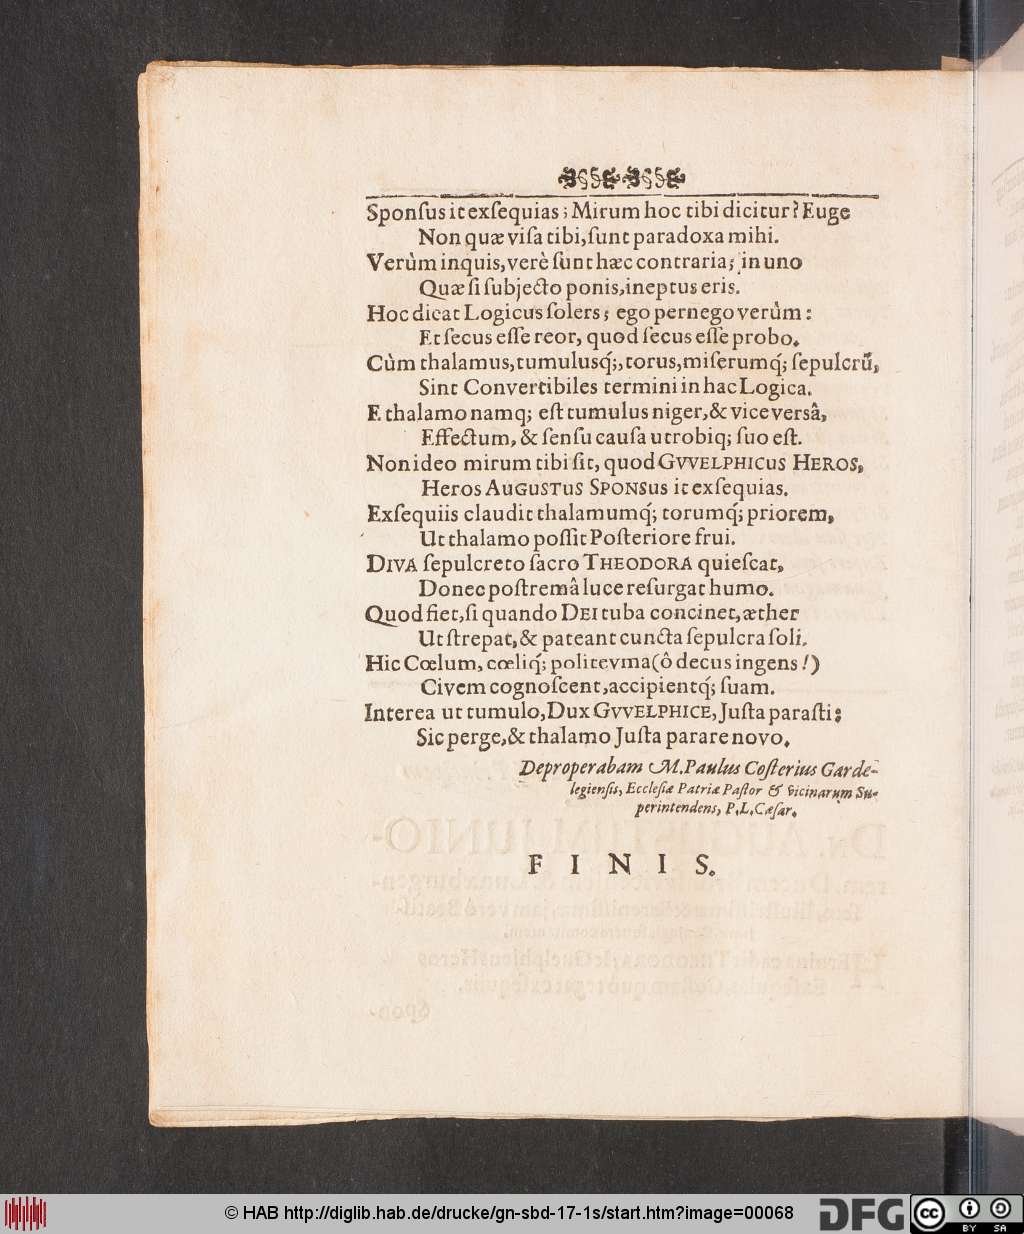 Sponſus it exſequias; Mirum hoc tibi dicitur? Euge
Non quæ viſa tibi, ſunt paradoxa mihi.
Verùm inquis, verè ſunt hæc contraria; in uno
Quæ ſi ſubjecto ponis, ineptus eris.
Hoc dicat Logicus ſolers; ego pernego verùm:
Et ſecus eſſe reor, quod ſecus eſſe probo.
Cùm thalamus, tumulusq́;, torus, miſerumq́; ſepulcrũ,
Sint Convertibiles termini in hac Logica.
E thalamo namq; eſt tumulus niger, & vice versâ,
Effectum, & ſenſu cauſa utrobiq; ſuo eſt.
Non ideo mirum tibi ſit, quod GVVELPHICUS HEROS,
Heros AUGUSTUS SPONSUS it exſequias.
Exſequiis claudit thalamumq́; torumq́; priorem,
Ut thalamo poſſit Poſteriore frui.
DIVA ſepulcreto ſacro THEODORA quieſcat,
Donec poſtremâ luce reſurgat humo.
Quod fiet, ſi quando DEI tuba concinet, æther
Ut ſtrepat, & pateant cuncta ſepulcra ſoli.
Hic Cœlum, cœliq́; politevma (ô decus ingens!)
Civem cognoſcent, accipientq́; ſuam.
Interea ut tumulo, Dux GVVELPHICE, Juſta paraſti;
Sic perge, & thalamo Juſta parare novo.
Deproperabam M. Paulus Coſterius Garde-
legienſis, Eccleſiæ Patriæ Paſtor & vicinarum Su-
perintendens, P. L. Cæſar.
FINIS.
© HAB http://diglib.hab.de/drucke/gn-sbd-17-1s/start.htm?image=00068
DFG
cc
BY SA